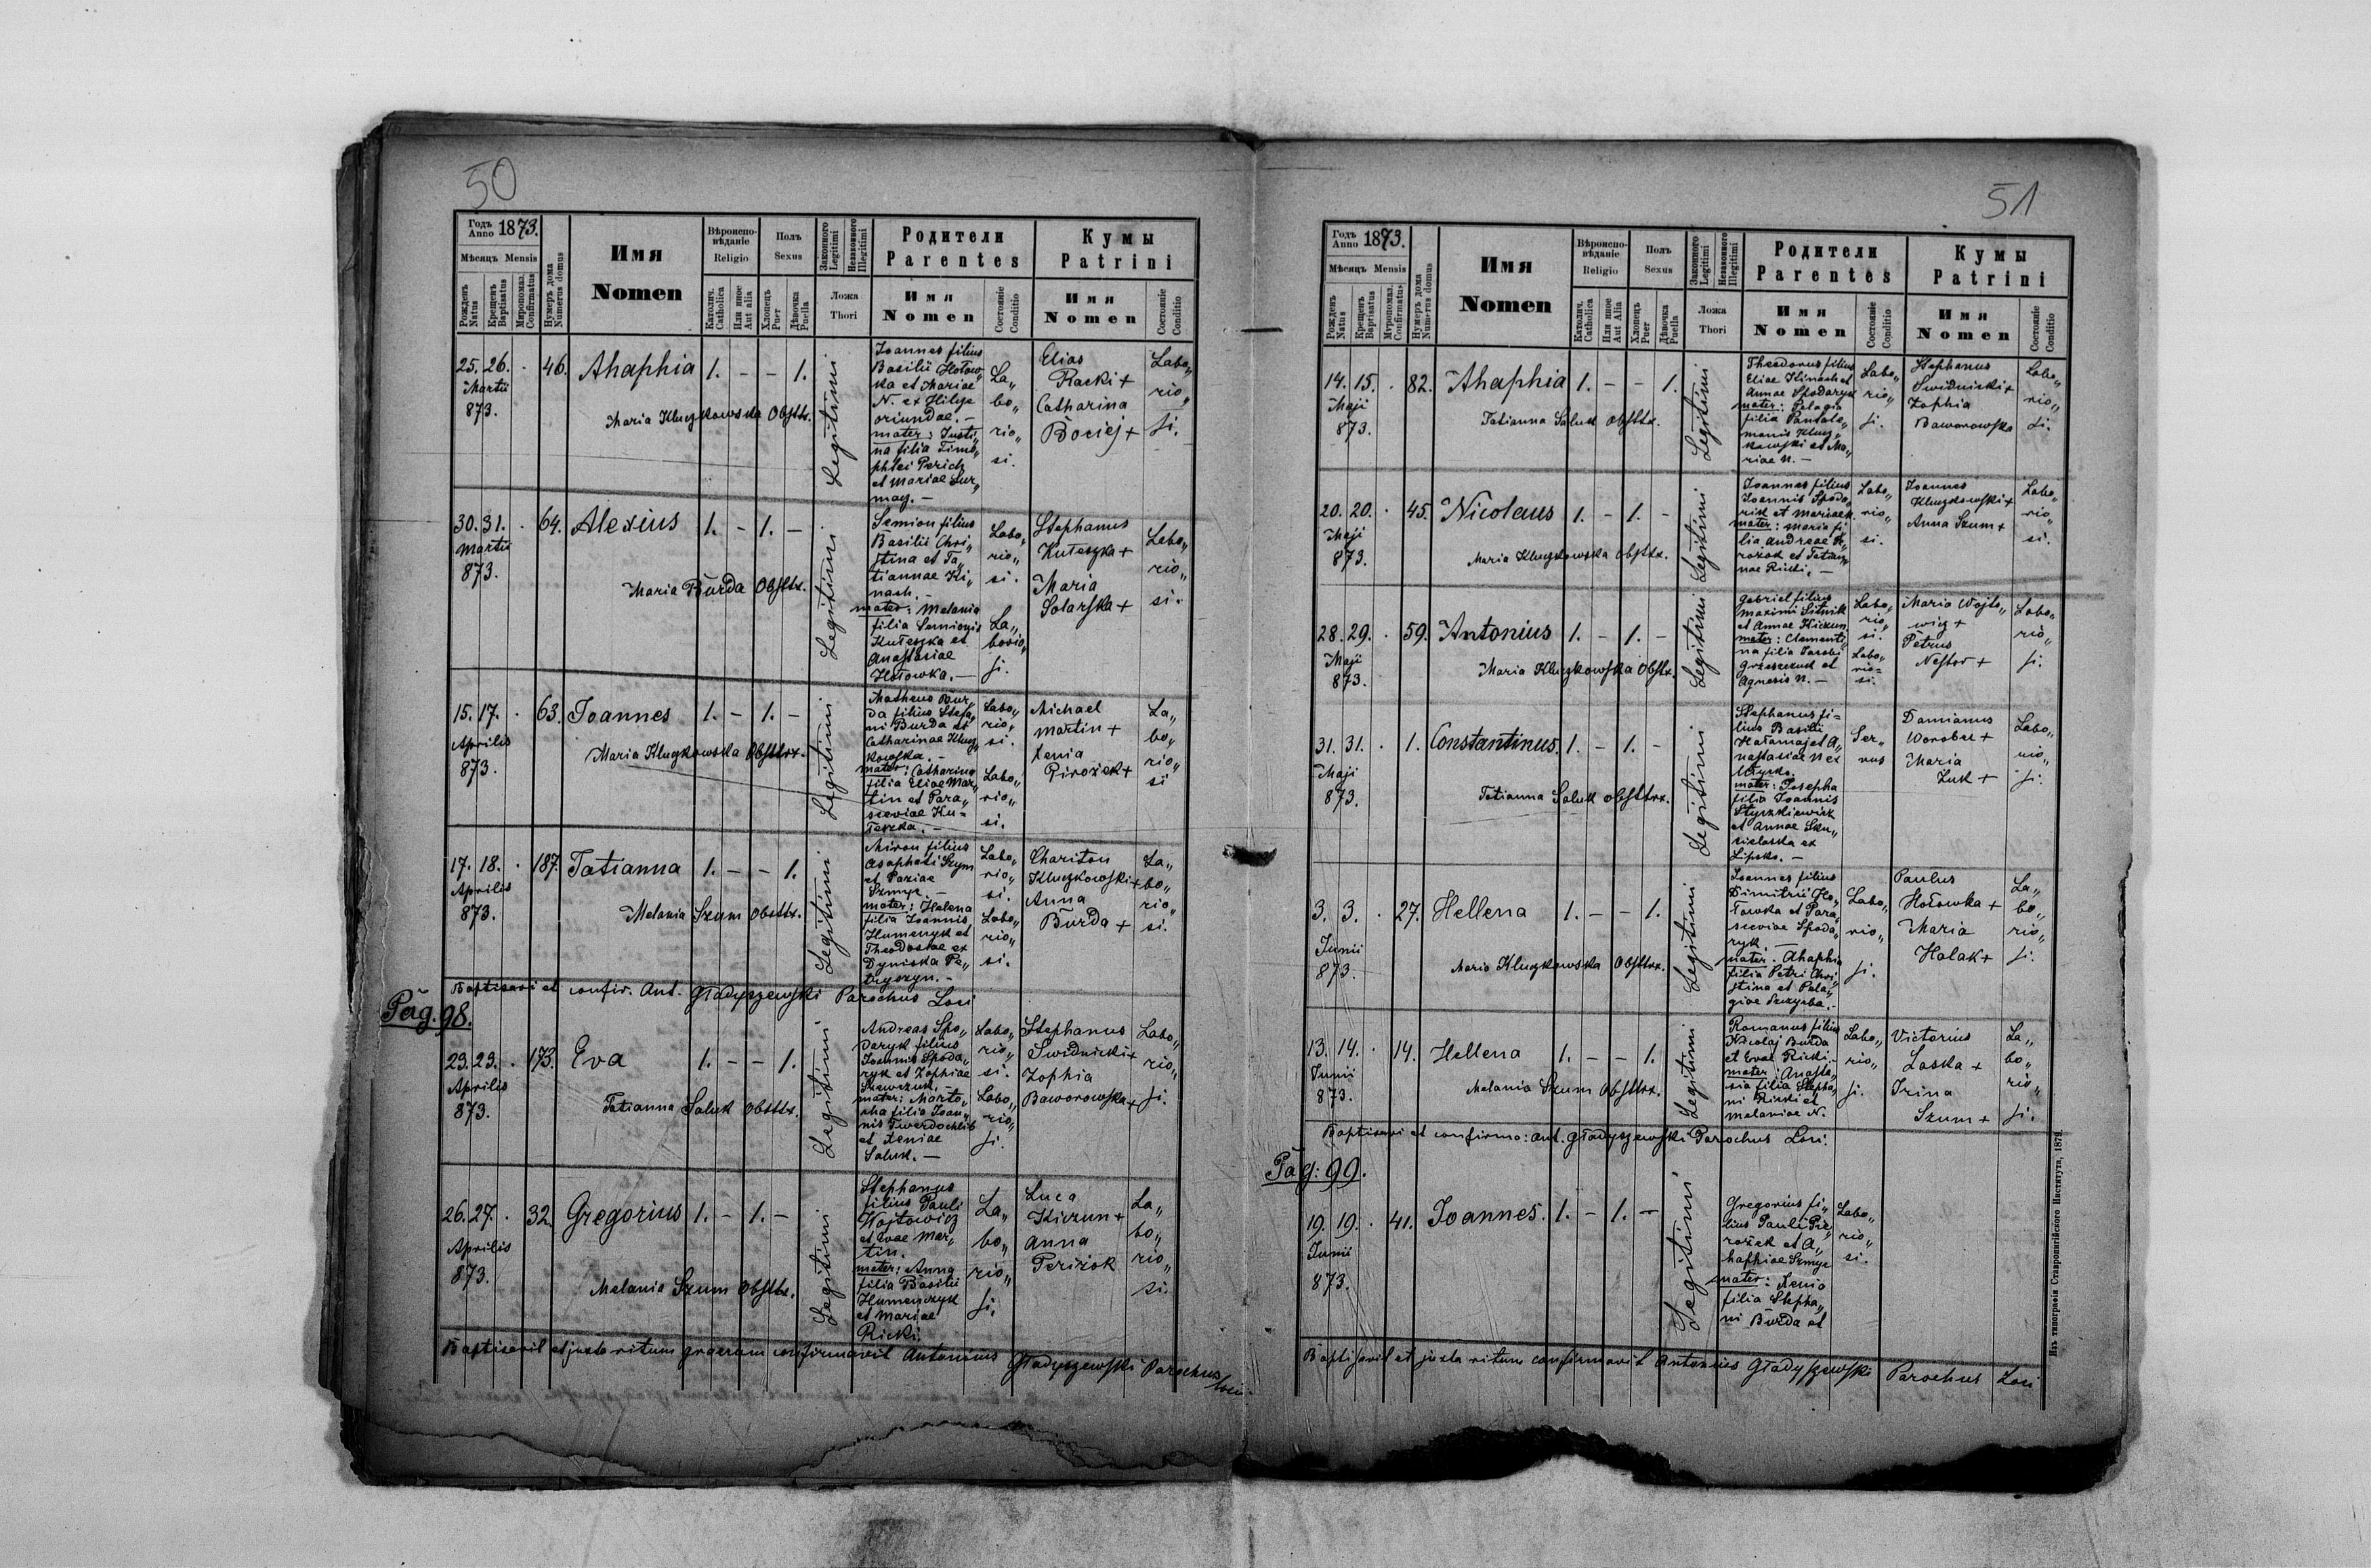 50
Годъ Anno 1873.
Мѣсяцъ Mensis
Рожденъ Natus
Крещенъ Baptisatus
Миропомаз. Confirmatus
Нумеръ дома Numerus domus
Имя
Nomen
Вѣроиспо-
вѣданіе
Religio
Католич. Catholica
Или иное Aut alia
Полъ
Sexus
Хлопецъ Puer
Дѣвочка Puella
Законного Legitimi
Незаконного Illegitimi
Ложа
Thori
Родители
Parentes
Имя
Nomen
Состояніе Conditio
Кумы
Patrini
Имя
Nomen
Состояніе Conditio
25. 26. · 46. Ahaphia 1. - - 1.
Martii
873.
Maria Kluczkowska Obsttx.
Legitimi
Joannes filius
Basilii Hołow„
ka et Mariae
N. ex
oriundae. -
mater: Justi„
na filia Timo„
phtei
et Mariae Sur„
may. -
La„
bo„
rio„
si.
Elias
Racki +
Catharina
Bociej +
Labo„
rio„
si.
30. 31. · 64. Alexius 1. - 1. -
Martii
873.
Maria Burda Obsttx.
Legitimi
Semion filius
Basilii Chri„
stina et Ta„
tiannae Ki„
nach. -
mater: Melania
filia Semionis
Kuteszka et
Anastasiae
Hołowka. -
Labo„
rio„
si.
La„
borio„
si.
Stephanus
Kuteszka +
Maria
Solarska +
Labo„
rio„
si.
15. 17. · 63. Joannes 1. - 1. -
Aprilis
873.
Maria Kluczkowska Obsttrx.
Legitimi
Matheus Bur„
da filius Stefa„
ni Burda et
Catharinae Klucz„
kowska. -
mater: Catharina
filia Eliae Mar„
tin et Para„
sceviae Ku=
teszka. -
Labo„
rio„
si.
Labo„
rio„
si.
Michael
Martin +
Xenia
Pirożek +
La„
bo„
rio„
si
17. 18. · 187. Tatianna 1. - - 1.
Aprilis
873.
Melania Szum Obsttx.
Legitimi
Miron filius
Asaphati Szym
et Paziae
Szmyr. -
mater: Helena
filia Joannis
Humenyk et
Theodosiae ex
Dyniska Pe„
tryczyn. -
Labo„
rio„
si.
Labo„
rio„
si.
Chariton
Kluczkowski +
Anna
Burda +
La„
bo„
rio„
si.
Baptisavi et confir. Ant. Gładyszewski Parochus Loci
Pag. 98.
23. 23. · 173. Eva 1. - - 1.
Aprilis
873.
Tatianna Saluk Obsttx.
Legitimi
Andreas Spo„
daryk filius
Joannis Spoda„
ryk et Zophiae
Szewczuk. -
mater: Marta„
cha filia Joan„
nis Twerdochlib
et Xeniae
Saluk. -
Labo„
rio„
si.
Labo„
rio„
si.
Stephanus
Swidnicki +
Zophia
Baworowska +
Labo„
rio„
si.
26. 27. · 32. Gregorius 1. - 1. -
Aprilis
873.
Melania Szum Obsttx.
Legitimi
Stephanus
filius Pauli
Wojtowicz
et Evae Mar„
tin.
mater: Anna
filia Basilii
Humenyk
et Mariae
Ricki.
La„
bo„
rio„
si.
Luca
Kiczun +
Anna
Perizok
La„
bo„
rio„
si.
Baptisavit et juxta ritum graecum confirmavit Antonius Gładyszewski Parochus loci
51
Годъ Anno 1873.
Мѣсяцъ Mensis
Рожденъ Natus
Крещенъ Baptisatus
Муропомаз. Confirmatus
Нумеръ дома Numerus domus
Имя
Nomen
Вѣроиспо-
вѣданіе
Religio
Католич. Catholica
Или иное Aut Alia
Полъ
Sexus
Хлопецъ Puer
Дѣвочка Puella
Законного Legitimi
Незаконного Illegitimi
Ложа
Thori
Родители
Parentes
Имя
Nomen
Состояніе Conditio
Кумы
Patrini
Имя
Nomen
Состояніе Conditio
14. 15. · 82. Ahaphia 1. - - 1.
Maji
873.
Tatianna Saluk obsttx.
Legitimi
Theodorus filius
Eliae Kinach et
Annae Spodaryk
mater: Pelagia
filia Pantale„
monis Klucz„
kowski et Ma„
riae N. -
Labo„
rio„
si.
Stephanus
Swidnicki +
Zophia
Baworowska
Labo„
rio„
si.
20. 20. · 45. Nicolaus 1. - 1. -
Maji
873.
Maria Kluczkowska obsttx.
Legitimi
Joannes filius
Joannis Spoda„
rik et Mariae
mater: Maria fi„
lia Andreae
rożok et Tatian„
nae Ricki. -
Labo„
rio„
si.
Joannes
Kluczkowski +
Anna Szum +
Labo„
rio„
si.
28. 29. · 59. Antonius 1. - 1. -
Maji
873.
Maria Kluczkowska Obsttx.
Legitimi
Gabriel filius
Maximi Sitnik
et Annae Kiczun
mater: Clementi„
na filia Jacobi
Grzeszczuk et
Agnesis N. -
Labo„
rio„
si.
Labo„
rio=
si.
Maria Wojto„
wicz +
Petrus
Nestor +
Labo„
rio„
si.
31. 31. · 1. Constantinus. 1. - 1. -
Maji
873.
Tatianna Saluk obsttrx.
Legitimi
Stephanus fi=
lius Basilii
Hałamaj et A„
nastasiae N ex
mater: Josepha
filia Joannis
Styczkiewicz
et Annae
ex
Lipsko. -
Ser„
vus
Damianus
Worobec +
Maria
Zuk +
Labo„
rio„
si.
3. 3. · 27. Hellena 1. - - 1.
Junii
873.
Maria Kluczkowska Obsttx.
Legitimi
Joannes filius
Dimitrii Ho„
łowka et Para„
sceviae Spoda„
ryk. -
mater. Ahaphia
filia Petri Chri„
stina et Pela„
giae Szczyrba. -
Labo„
rio„
si.
Paulus
Hołowka +
Maria
Halak +
La„
bo„
rio„
si.
13. 14. · 14. Hellena 1. - - 1.
Junii
873.
Melania Szum Obsttx.
Legitimi
Romanus filius
Nicolaj Burda
et Evae Ricki. -
mater: Anasta„
sia filia Stepha„
ni Ricki et
Melaniae N.
Labo„
rio„
si.
Victorius
Laska +
Irina
Szum +
La„
bo„
rio„
si.
Baptisavi et confirmo: Ant. Gładyszewski Parochus Loci.
Pag: 99.
19. 19. · 41. Joannes. 1. - 1. -
Junii
873.
Legitimi
Gregorius fi„
lius Pauli Pie„
rożek et A„
haphiae Szmyr
mater: Xenia
filia Stepha„
ni Burda et
Labo„
rio„
si.
Baptisavit et juxta ritum confirmavit Antonius Gładyszewski Parochus Loci
Изъ типографіи Ставропигійского Института, 1879.